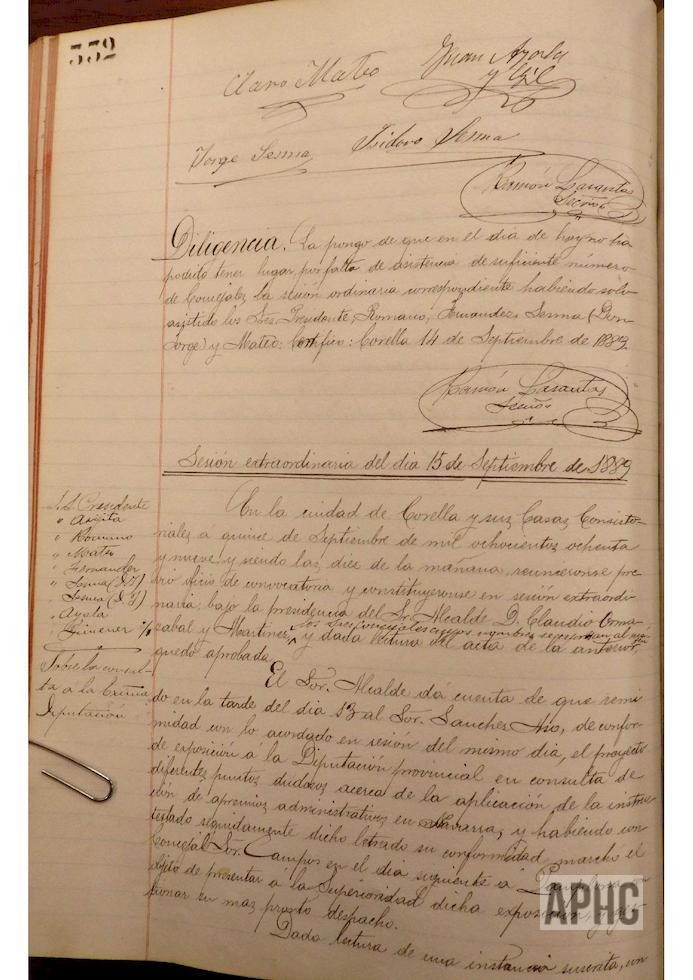 332
Claro Mateo
Juan Ayala
y Gil
Jorge Sesma
Isidoro Sesma
Ramón Lasantas
Secrio
Diligencia. La pongo de que en el dia de hoy no ha
podido tener lugar por falta de asistencia de suficiente número
de Concejales la sesión ordinaria correspondiente habiendo solo
asistido los Sres. Presidente, Romano, Fernandez, Sesma (Don
Jorge) y Mateo: Certifico: Corella 14 de Septiembre de 1889.
Ramón Lasantas
Secrio
Sesión extraordinaria del dia 15 de Septiembre de 1889
S.S. Presidente
" Argita
" Romano
" Mateo
" Fernandez
" Sesma (D. J)
" Sesma (D. Y)
" Ayala
" Gimenez
Sobre la consul-
ta a la Excma.
Diputación
En la ciudad de Corella y sus Casas Consisto-
riales á quince de Septiembre de mil ochocientos ochenta
y nueve y siendo las diez de la mañana, reunieronse pre-
vio oficio de convocatoria y constituyeronse en sesión extraordi-
naria, bajo la presidencia del Sr. Alcalde D. Claudio Orma-
los Sres Concejales cuyos nombres se expresan al
zabal y Martinez, y dada lectura del acta de la anterior,
quedó aprobada.
El Sor. Alcalde dá cuenta de que remi
do en la tarde del dia 13 al Sor. Sanchez Mio, de confor-
midad con lo acordado en sesión del mismo dia, el proyecto
de exposición á la Diputación provincial en consulta de
diferentes puntos dudosos acerca de la aplicación de la instruc
ción de apremios administrativos en Navarra, y habiendo con
testado seguidamente dicho letrado su conformidad marchó el
Concejal Sor. Campos en el dia siguiente á Pamplona con
objeto de presentar a la Superioridad dicha exposicion y ges-
tionar su mas pronto despacho.
Dada lectura de una instancia suscrita, con
APHC